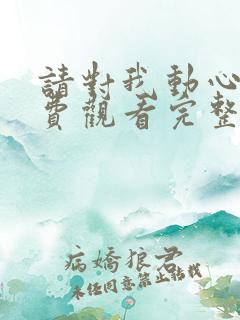 請對我動心
費觀看完整
病嬌狼君
未任同意禁止转载